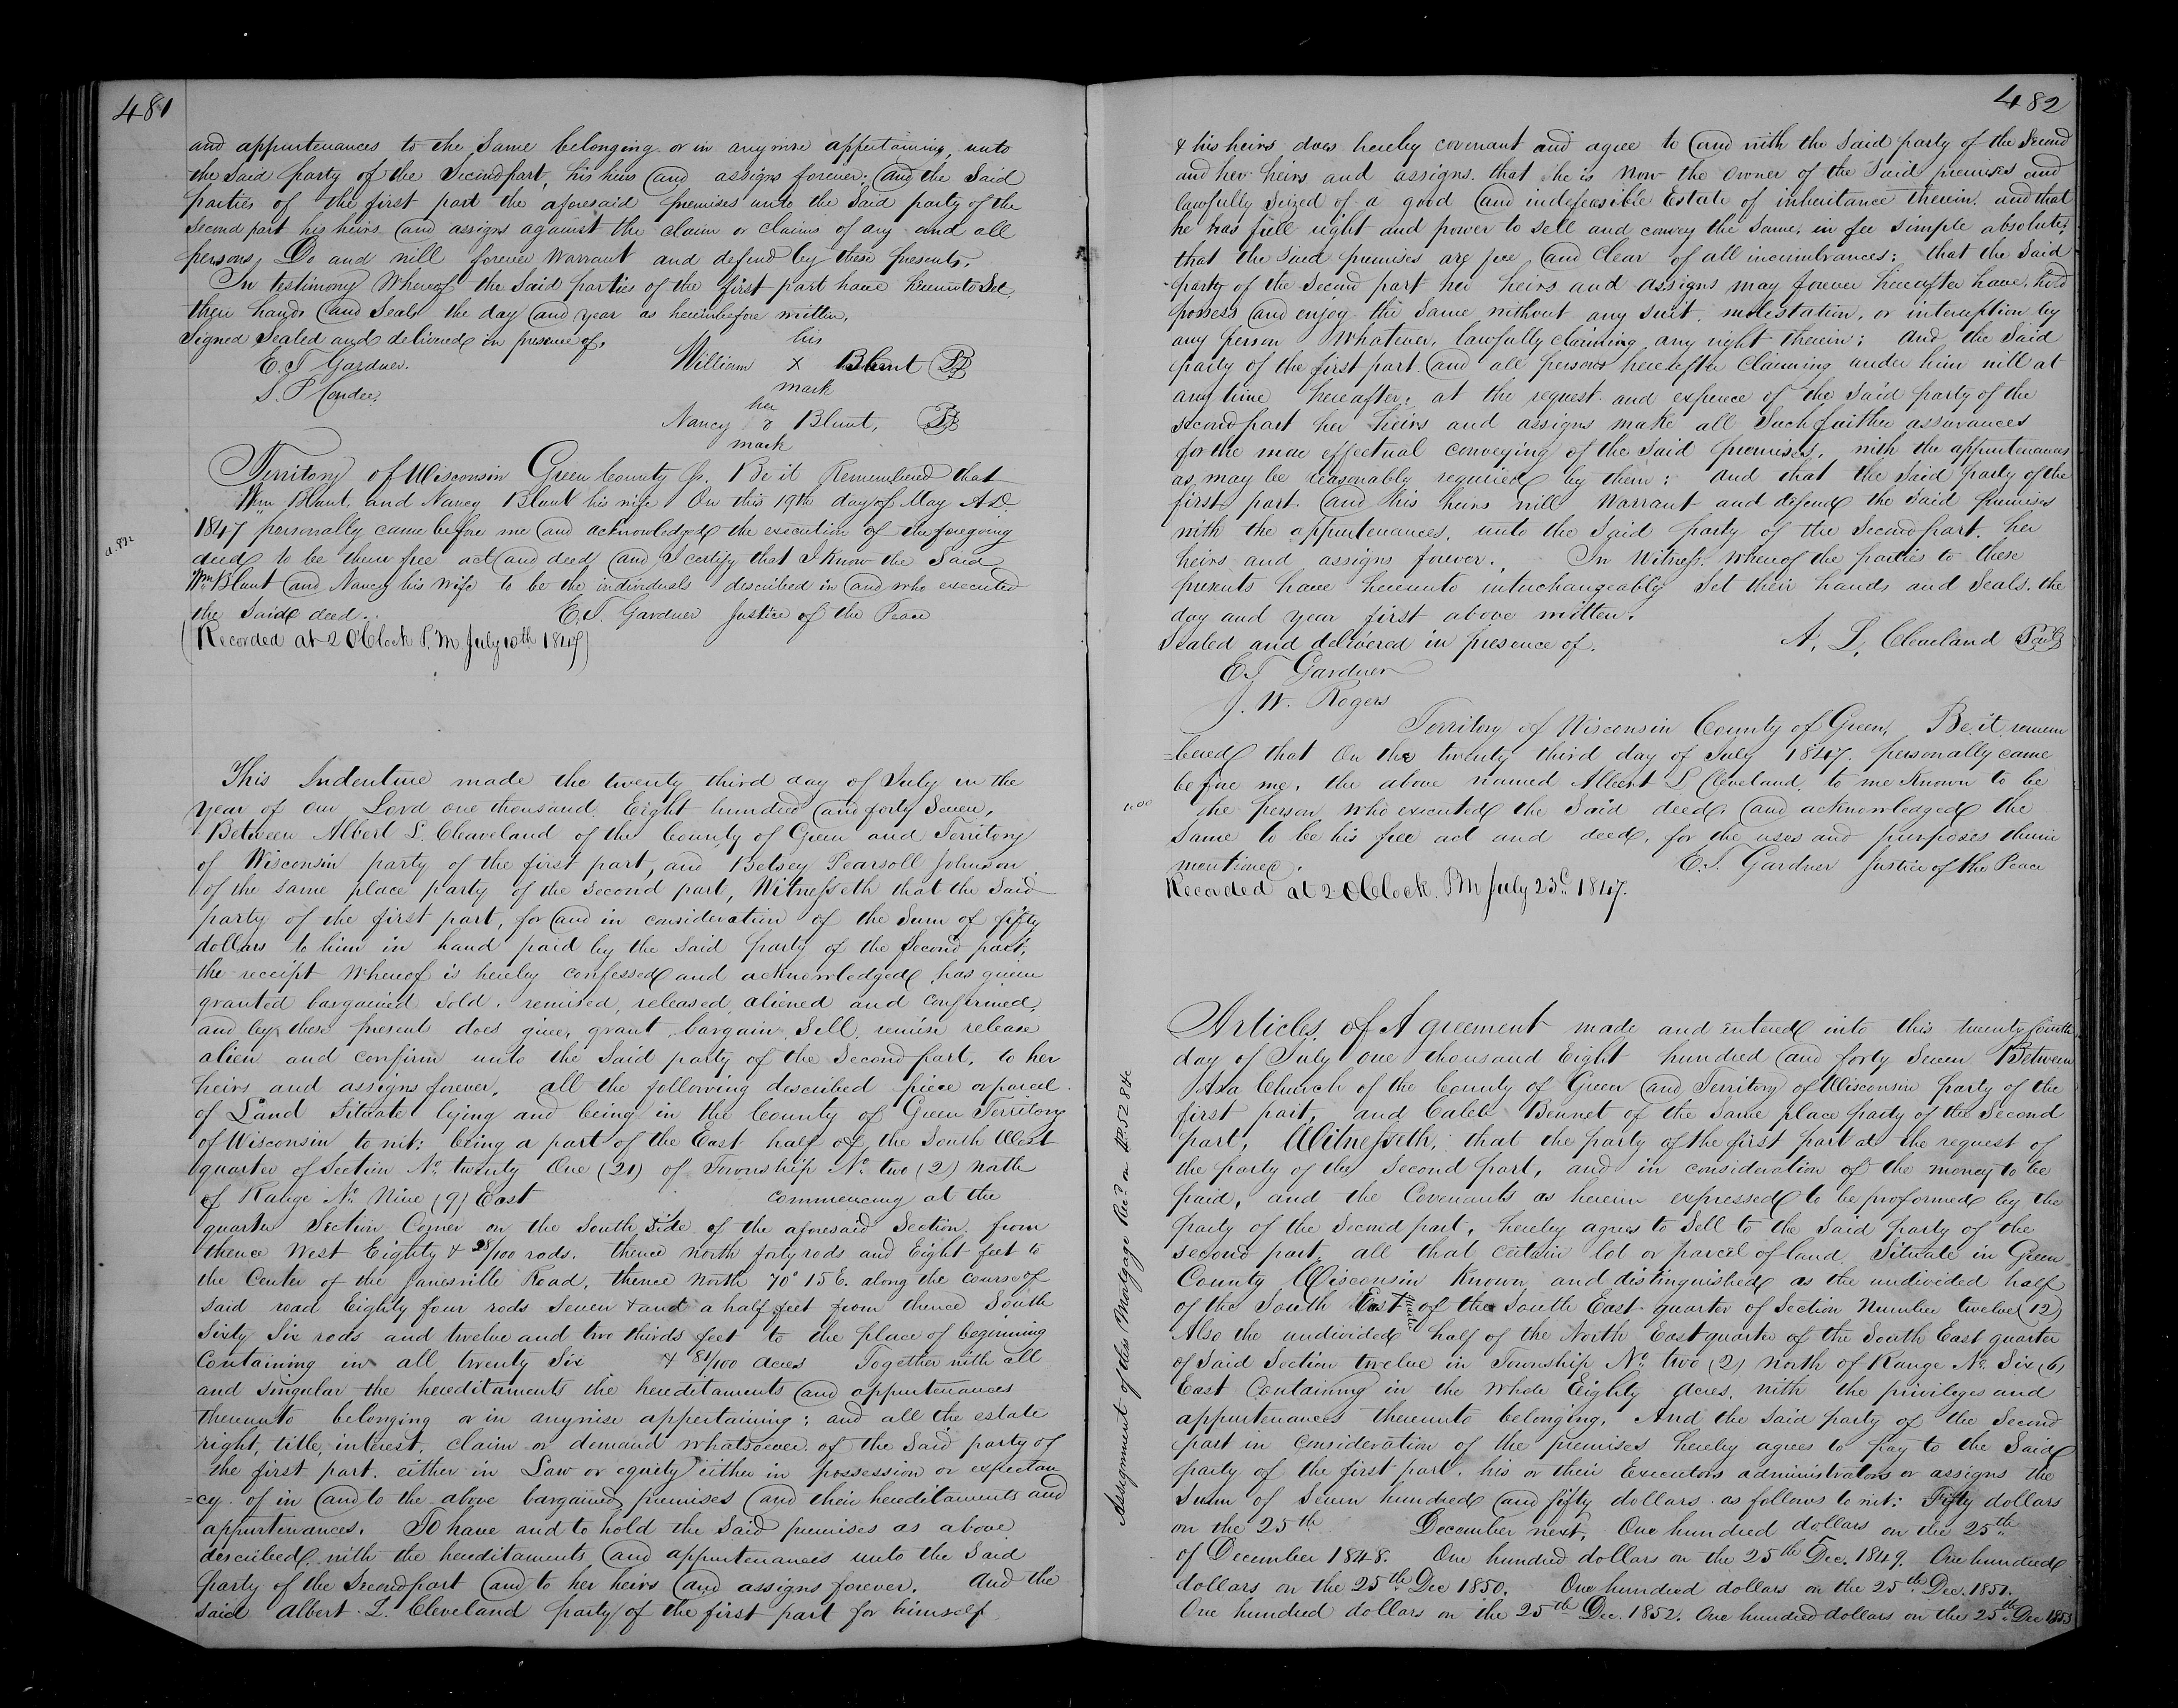 481
and appurtenances to the Same belonging or in anywise appertaining, unto
the Said party of the Second part, his heirs and assigns forever; and the Said
parties of the first part the aforesaid premises unto the Said party of the
Second part his heirs and assigns against the claim or claims of any and all
persons, Do and will forever Warrant and defend by these presents.
In testimony Whereof the Said parties of the first part have hereunto Set
their hands and Seals the day and year as hereinbefore written.
Signed Sealed and delivered in presence of.
his
E. T. Gardner. William X Blunt
S. P. Condee. mark
her
Nancy Blunt,
mark
Territory of Wisconsin Green County Ss. Be it Remembered that
Wm Blunt, and Nancy Blunt his wife On this 19th day of May AD.
1847 personally came before me and acknowledged the execution of the foregoing
deed to be their free act and deed and I certify that I Know the Said
Wm Blunt and Nancy his Wife to be the individuals described in and who executed
the Said deed. E. T. Gardner Justice of the Peace
(Recorded at 2 OClock P. M July 10th 1847)
This Indenture made the twenty third day of July in the
year of our Lord one thousand Eight hundred and forty Seven,
Between Albert L. Cleaveland of the County of Green and Territory
of Wisconsin party of the first part, and Betsey Pearsoll Johnson
of the Same place party of the Second part, Witnesseth that the Said
party of the first part, for and in consideration of the Sum of fifty
dollars to him in hand paid by the Said party of the Second part,
the receipt Whereof is hereby confessed and acknowledged has given
granted bargained Sold. remised, released, aliened and confirmed,
and by these presents does give, grant, bargain, Sell, remise release
alien and confirm unto the Said party of the Second part, to her
heirs and assigns forever, all the following described piece or parcel
of Land Situate lying and being in the County of Green Territory
of Wisconsin to wit: being a part of the East half of the South West
quarter of Section No. twenty One (21) of Township No. two (2) North
of Range No. Nine (9) East commencing at the
quarter Section Corner on the South Side of the aforesaid Section, from
thence West Eighty & 38/100 rods. thence North forty rods and Eight feet to
the Center of the Janesville Road, thence North 70° 15 E. along the course of
Said road Eighty four rods Seven & and a half feet from thence South
Sixty Six rods and twelve and two thirds feet to the place of beginning
Containing in all twenty Six & 81/100 acres Together with all
and Singular the hereditaments the hereditaments and appurtenances
thereunto belonging or in anywise appertaining; and all the estate
right, title, interest, claim or demand whatsoever. of the Said party of
the first part. either in Law or equity either in possession or expectan
=cy. of in and to the above bargained premises and their hereditaments and
appurtenances. To have and to hold the Said premises as above
described with the hereditaments and appurtenances unto the Said
party of the Second part and to her heirs and assigns forever. And the
Said Albert L. Cleveland party of the first part for himself
482
& his heirs does hereby covenant and agree to and with the Said party of the Second
and her heirs and assigns. that he is Now the Owner of the Said premises and
lawfully Seized of a good and indefeasible Estate of inheritance therein. and that
he has full right and power to sell and convey the Same, in fee Simple absolute;
that the Said premises are free and Clear of all incumbrances; that the Said
party of the Second part her heirs and assigns may forever hereafter have, hold
possess and enjoy the Same without any Suit, molestation, or interuption by
any person Whatever, lawfully claiming any right therein; And the Said
party of the first part and all persons hereafter Claiming under him will at
any time hereafter, at the request and expence of the Said party of the
Second part her heirs and assigns make all Such faither assurances
for the more effectual conveying of the Said premises, with the appurtenances
as may be reasonably required by them; And that the Said party of the
first part and his heirs will Warrant and defend the Said premises
with the appurtenances, unto the Said party of the Second part, her
heirs and assigns forever. In Witness Whereof the parties to these
presents have hereunto interchangeably Set their hands and Seals. the
day and year first above written.
Sealed and delivered in presence of. A. L. Cleveland
E. T Gardner
J. W. Rogers
Territory of Wisconsin County of Green, Be it remem
=bered that On the twenty third day of July 1847. personally came
before me, the above named Albert L Cleveland, to me Known to be
the person Who executed the Said deed, and acknowledged the
Same to be his free act and deed, for the uses and purposes therein
mentioned. E. T. Gardner Justice of the Peace
Recorded at 2 OClock. P M July 23d. 1847.
Assignment of this Mortgage
Articles of Agreement made and entered into this twenty fourth
day of July one thousand Eight hundred and forty Seven Between
Asa Church of the County of Green and Territory of Wisconsin party of the
first part, and Caleb Bennet of the Same place party of the Second
part, Witnesseth, that the party of the first part at the request of
the party of the Second part, and in consideration of the money to be
paid, and the Covenants as herein expressed to be proformed by the
party of the Second part, hereby agrees to Sell to the Said party of the
Second part, all that certain lot or parcel of land Situate in Green
County Wisconsin Known and distinguished as the undivided half
of the South East quarter of the South East quarter of Section Number twelve (12)
Also the undivided half of the North East quarter of the South East quarter
of Said Section twelve in Township No. two (2) North of Range No. Six (6)
East Containing in the Whole Eighty acres. with the privileges and
appurtenances thereunto belonging. And the Said party of the Second
part in consideration of the premises hereby agrees to pay to the Said
party of the first part, his or their Executors administrators or assigns the
Sum of Seven hundred and fifty dollars as follows to wit: Fifty dollars
on the 25th December next, One hundred dollars on the 25th
of December 1848. One hundred dollars on the 25th Dec. 1849. One hundred
dollars on the 25th Dec 1850. One hundred dollars on the 25th Dec. 1851.
One hundred dollars on the 25th Dec. 1852. One hundred dollars on the 25th Dec 1853